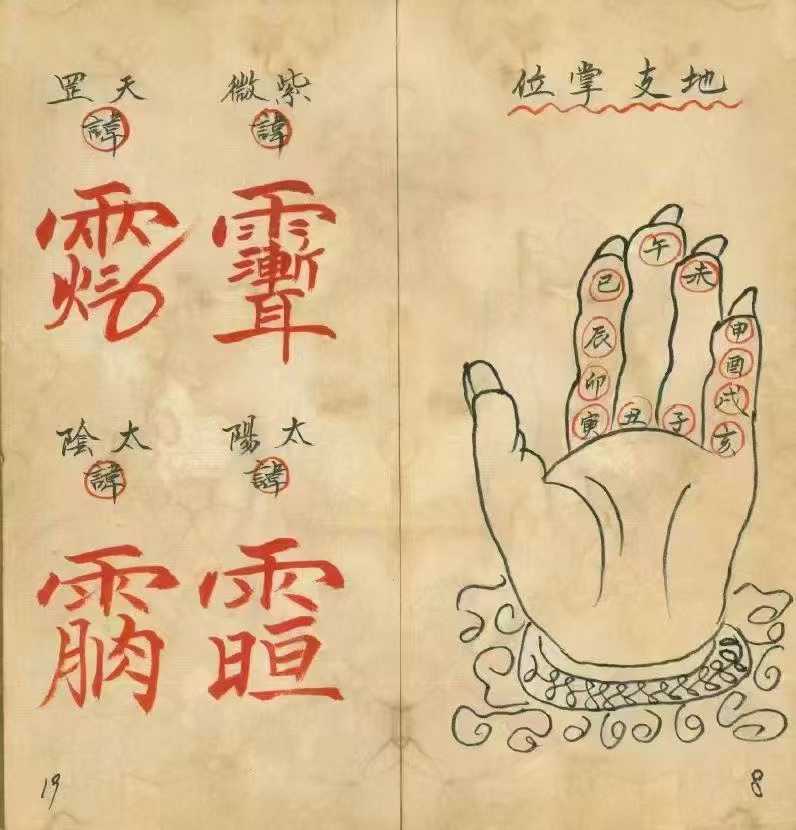 地支掌位
午
巳
未
辰
申
卯
酉
寅
丑
子
戌
亥
8
紫微
諱
天罡
諱
太陽
諱
太陰
諱
19